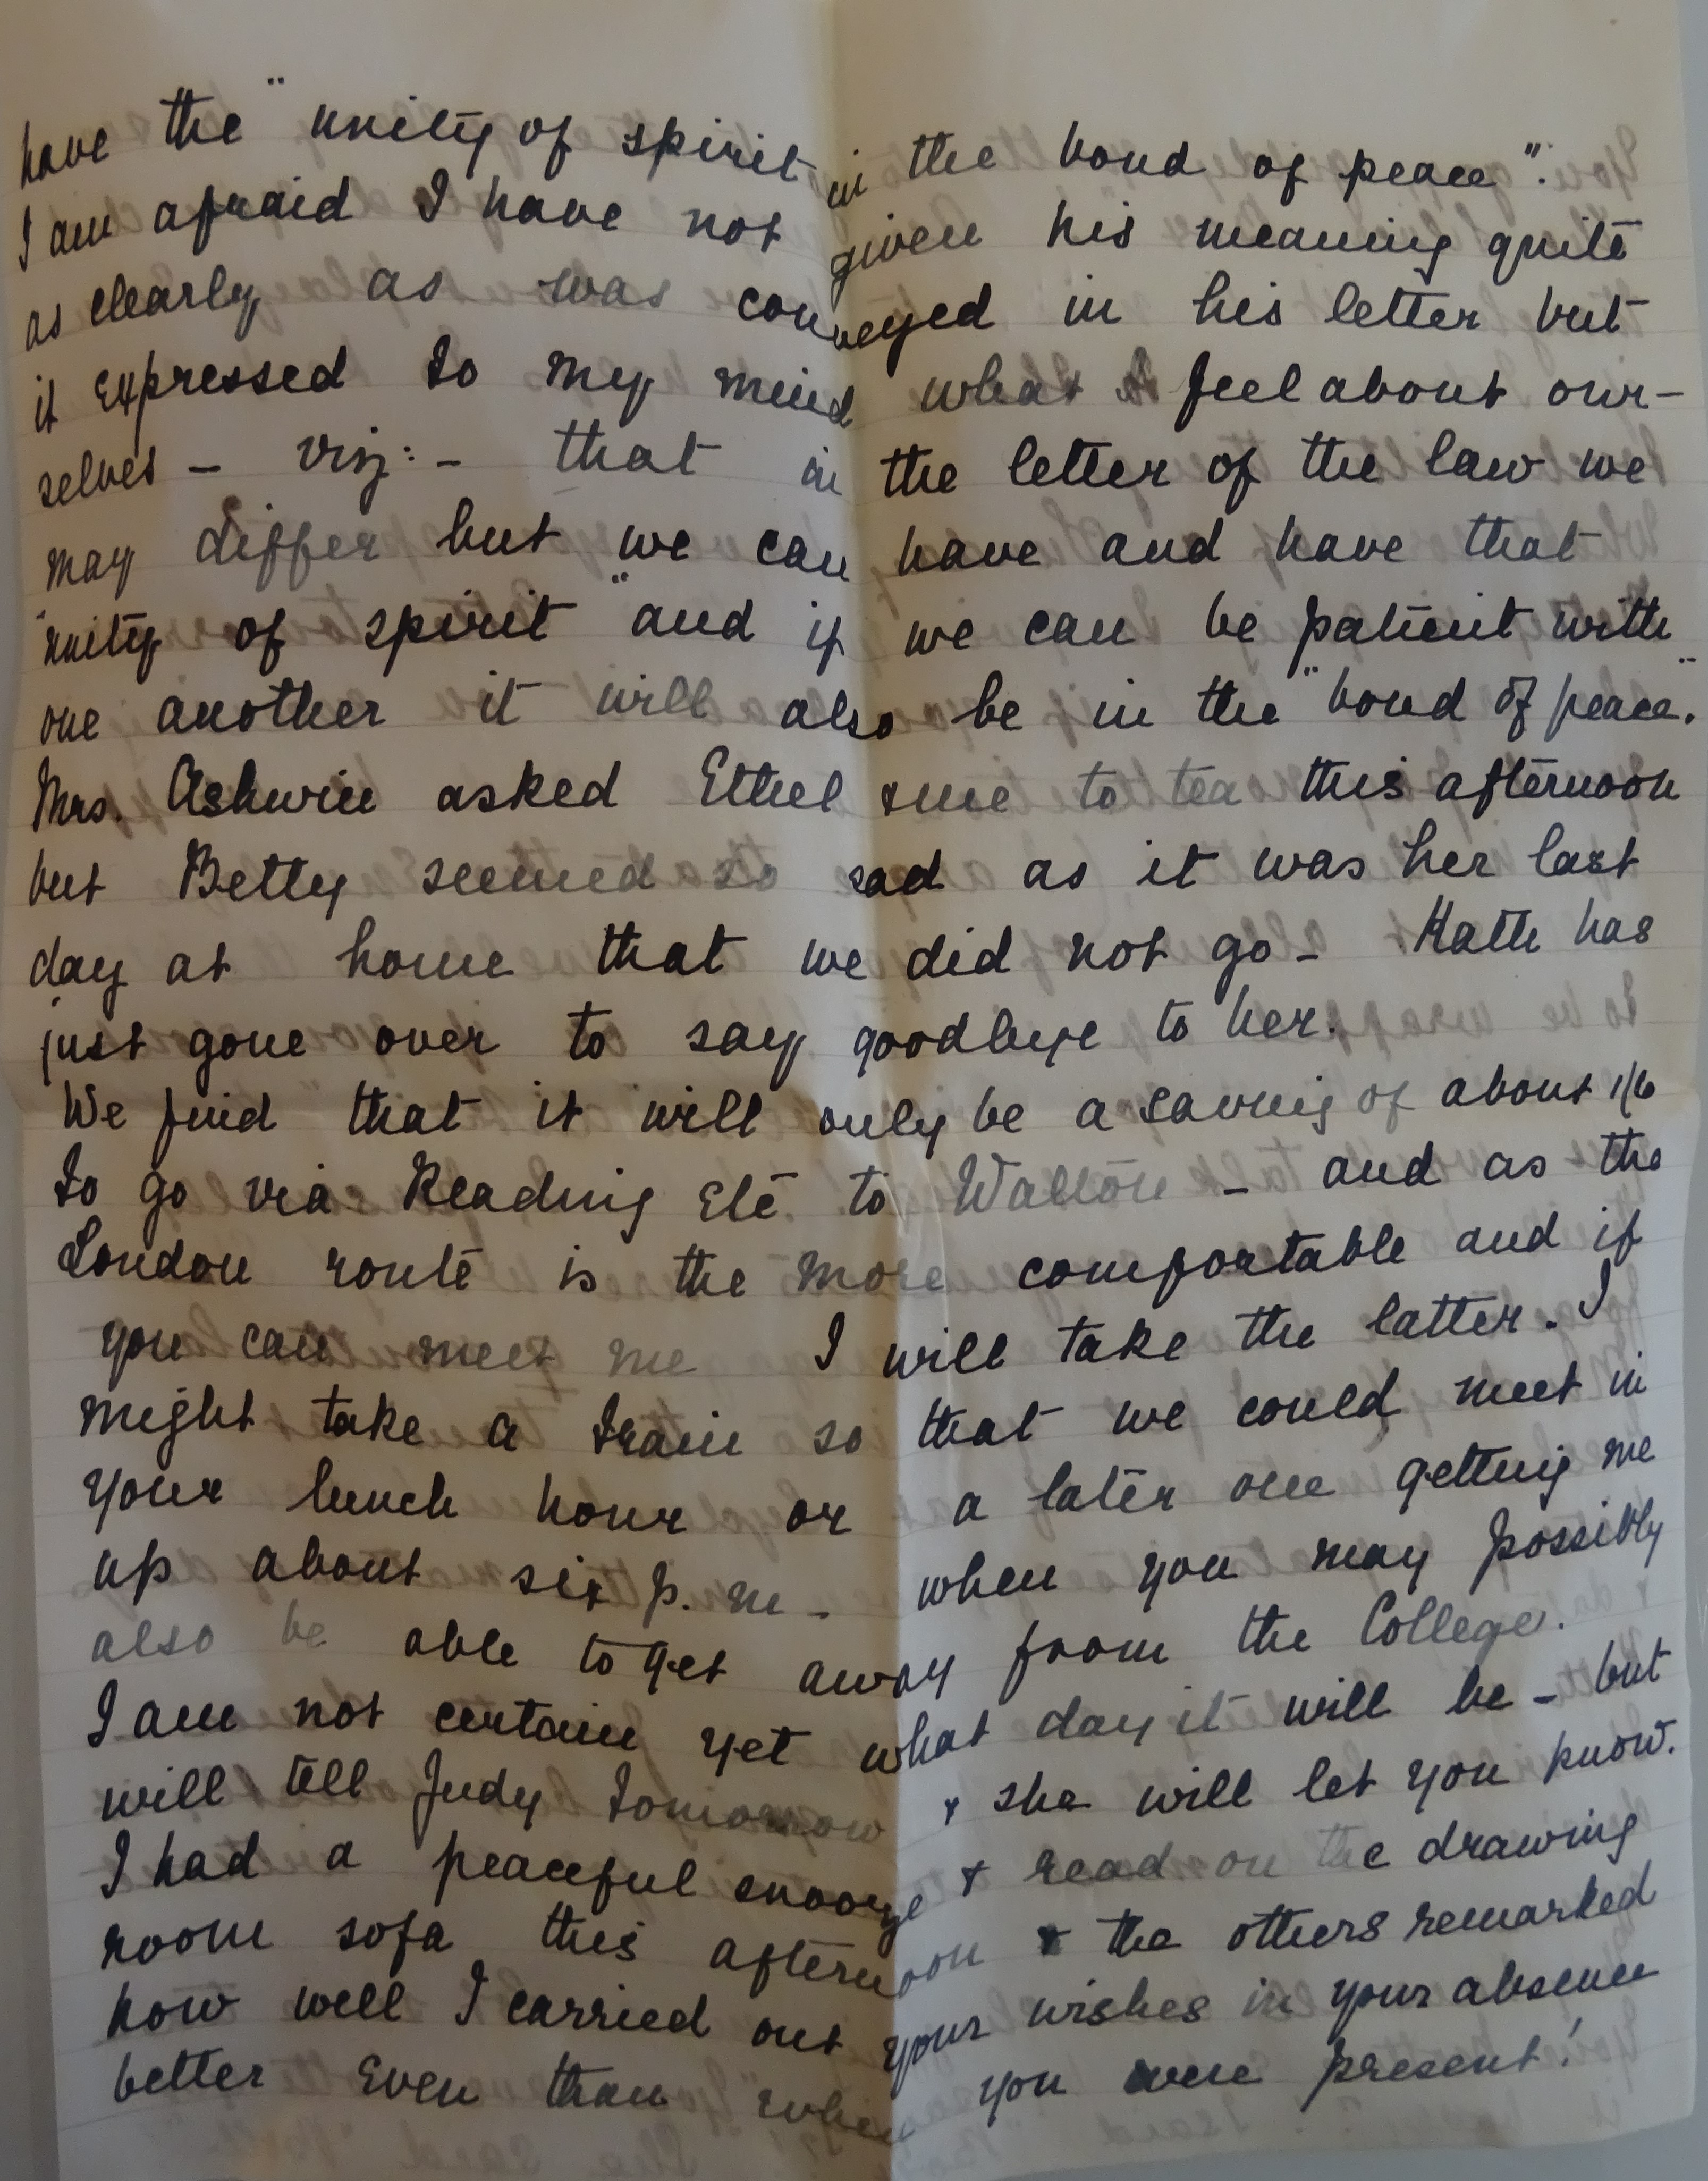 have the "unity of spirit in the bond of peace".
I am afraid I have not given his meaning quite
as clearly as was conveyed in his letter but
it expressed to my mind what I feel about our-
selves - viz:- that in the letter of the law we
may differ but we can have and have that
"unity of spirit" and if we can be patient with
one another it will also be in the "bond of peace."
Mrs. Ashwin asked Ethel & me to tea this afternoon
but Betty seemed so sad as it was her last
day at home that we did not go - Kath has
just gone over to say goodbye to her.
We find that it will only be a saving of about 1/6
to go via Reading etc. to Walton - and as the
London route is the more comfortable and if
you can meet me I will take the latter. I
might take a train so that we could meet in
your lunch hour or a later one getting me
up about six p.m - when you may possibly
also be able to get away from the College.
I am not certain yet what day it will be - but
will tell Judy tomorrow & she will let you know.
I had a peaceful snooze & read on the drawing
room sofa this afternoon & the others remarked
how well I carried out your wishes in your absence
better even than when you were present!